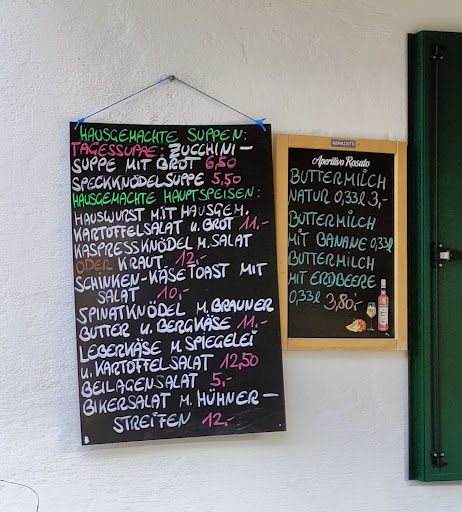 HAUSGEMACHTE SUPPEN:
TAGESSUPPE: ZUCCHINI-
SUPPE MIT BROT 6,50
SPECKKNÖDELSUPPE 5,50
HAUSGEMACHTE HAUPTSPEISEN:
HAUSWURST MIT HAUSGEM.
KARTOFFELSALAT U. BROT 11.-
KASPRESSKNÖDEL M. SALAT
ODER KRAUT 12,-
SCHINKEN-KÄSETOAST MIT
SALAT 10,-
SPINATKNÖDEL M. BRAUNER
BUTTER U. BERGKÄSE 11.-
LEBERKÄSE M. SPIEGELEI
U. KARTOFFELSALAT 12,50
BEILAGENSALAT 5,-
BIKERSALAT M. HÜHNER-
STREIFEN 12,-
RAMAZZOTTI
Aperitivo Rosato
BUTTERMILCH
NATUR 0,33l 3,-
BUTTERMILCH
MIT BANANE 0,33l
BUTTERMILCH
MIT ERDBEERE
0,33l 3,80,-